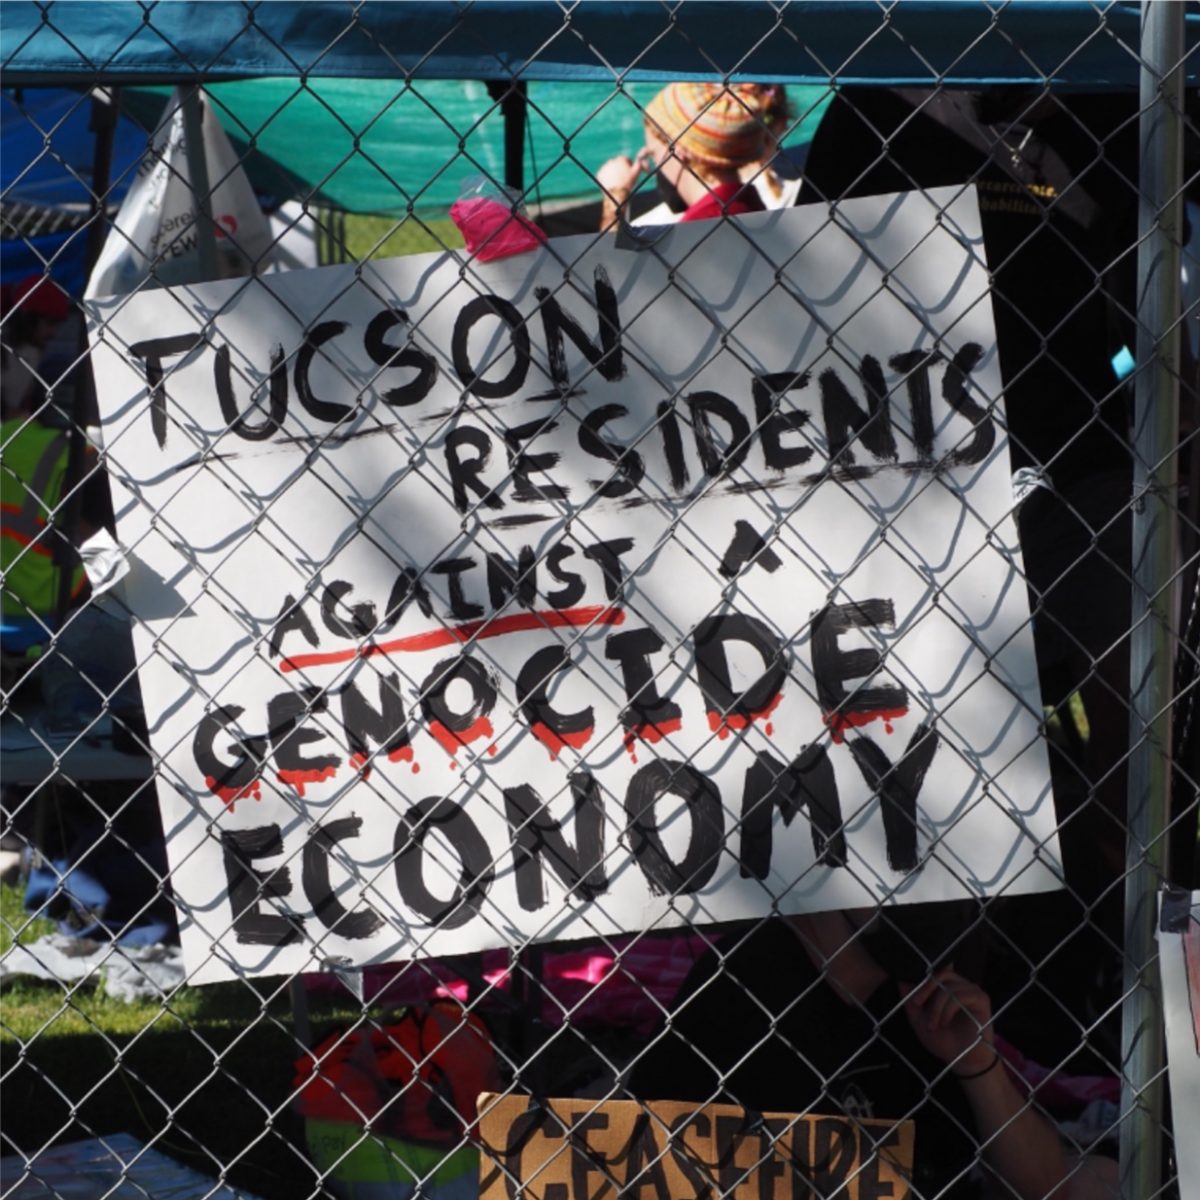 TUCSON
RESIDENTS
AGAINST A
GENOCIDE
ECONOMY
CEASEFIRE